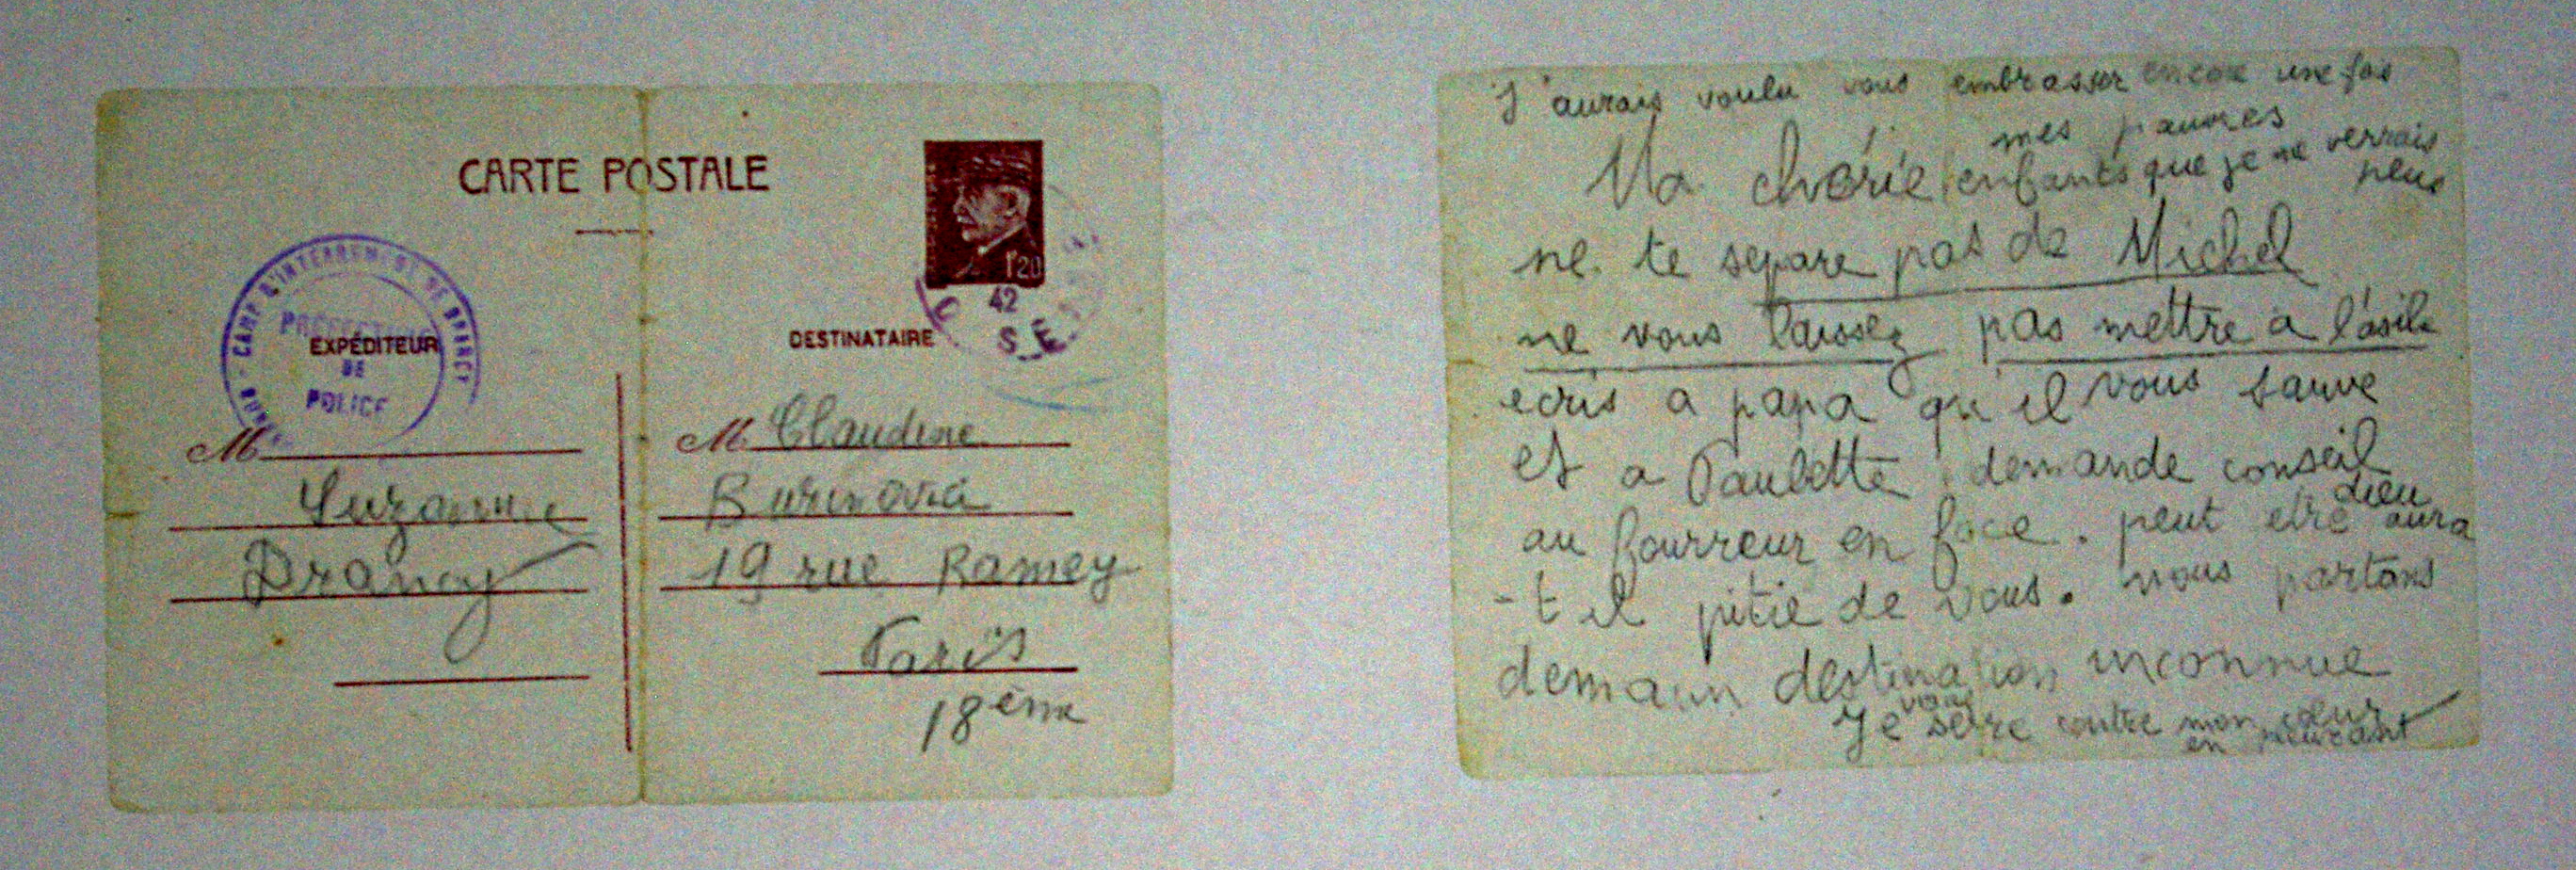 CARTE POSTALE
CAMP D'INTERNEMENT DE DRANCY
PRÉFECTURE
DE
POLICE
EXPÉDITEUR
M
Suzanne
Drancy
1F20
42
SEINE
DESTINATAIRE
M Claudine
Burinovici
19 rue Ramey
Paris
18ème
J'aurais voulu vous embrasser encore une fois
mes pauvres
enfants que je ne verrais
plus
Ma chérie
ne te separe pas de Michel
ne vous laissez pas mettre a l'asile
ecris a papa qu'il vous sauve
et a Paulette. demande conseil
au fourreur en face. peut etre dieu aura
-t il pitie de vous. nous partons
demain destination inconnue
Je vous serre contre mon cœur
en pleurant